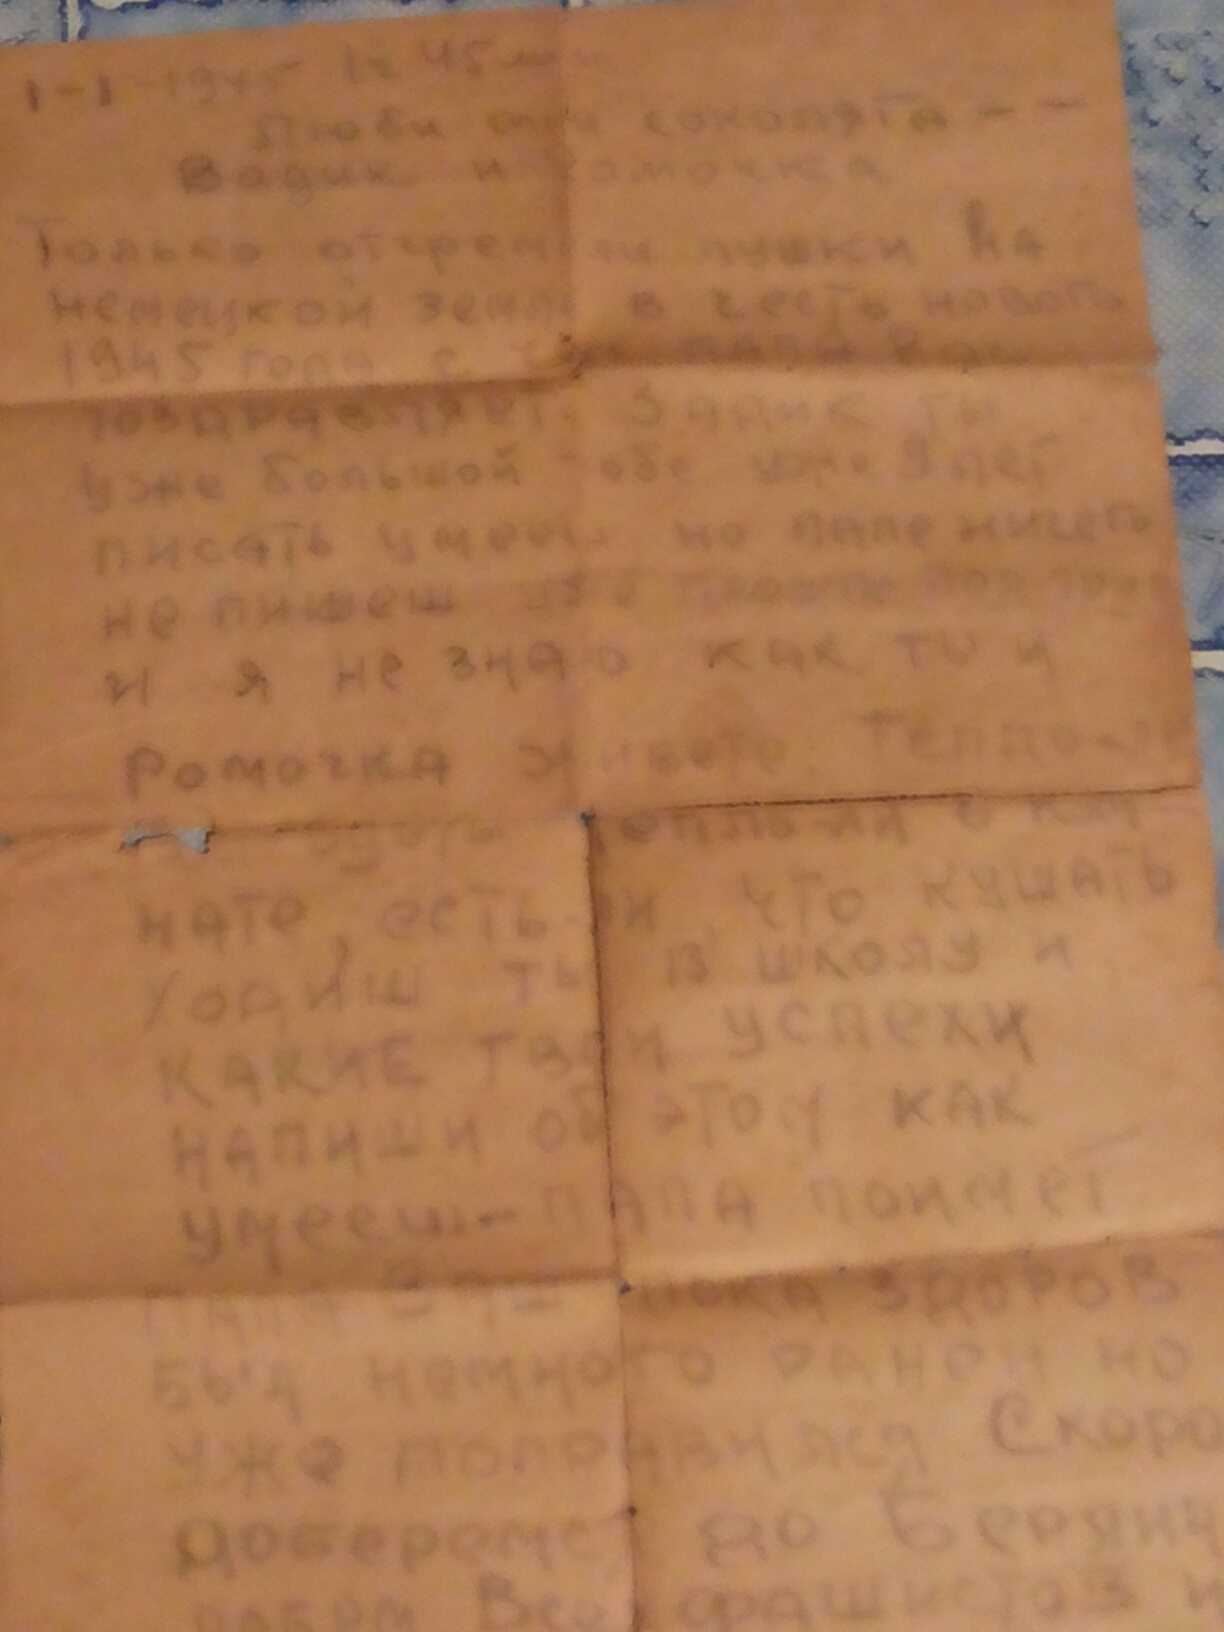 1-1-1945 1ч 45 мин
Люби мои соколята - -
Вадик и Ромочка
Только отгремели пушки на
немецкой земле в честь нового
1945 года с ним папа Вас
поздравляет. Вадик ты
уже большой тебе уже 9 лет
писать умееш но папе ничего
не пишеш уже
и я не знаю как ты и
Ромочка живете. Тепло-ли
в ком-
нате, есть-ли что кушать
Ходиш ты в школу и
КАКИЕ ТВОИ успехи
НАПИШИ об этом КАК
умееш - ПАПА поймет
ПАПА - Я - ПОКА ЗДОРОВ
Был немного ранен но
уже поправился Скоро
доберемся до Берлина
Всех фашистов и